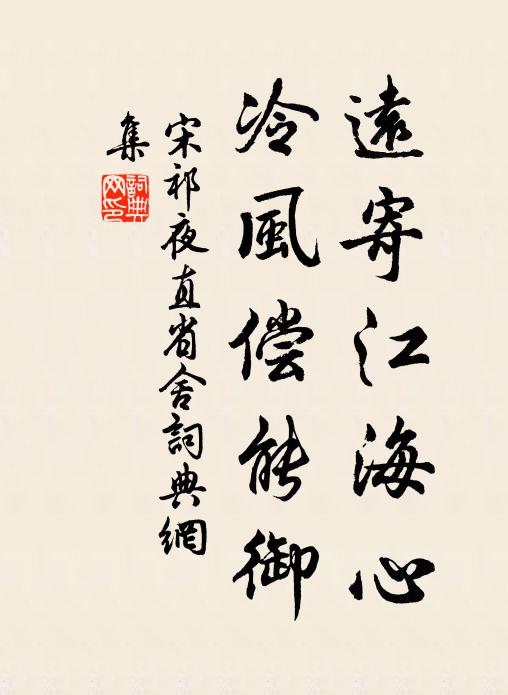 遠寄江海心
冷風偿能御
宋祁夜直省舍詞典網
集
詞典
网印